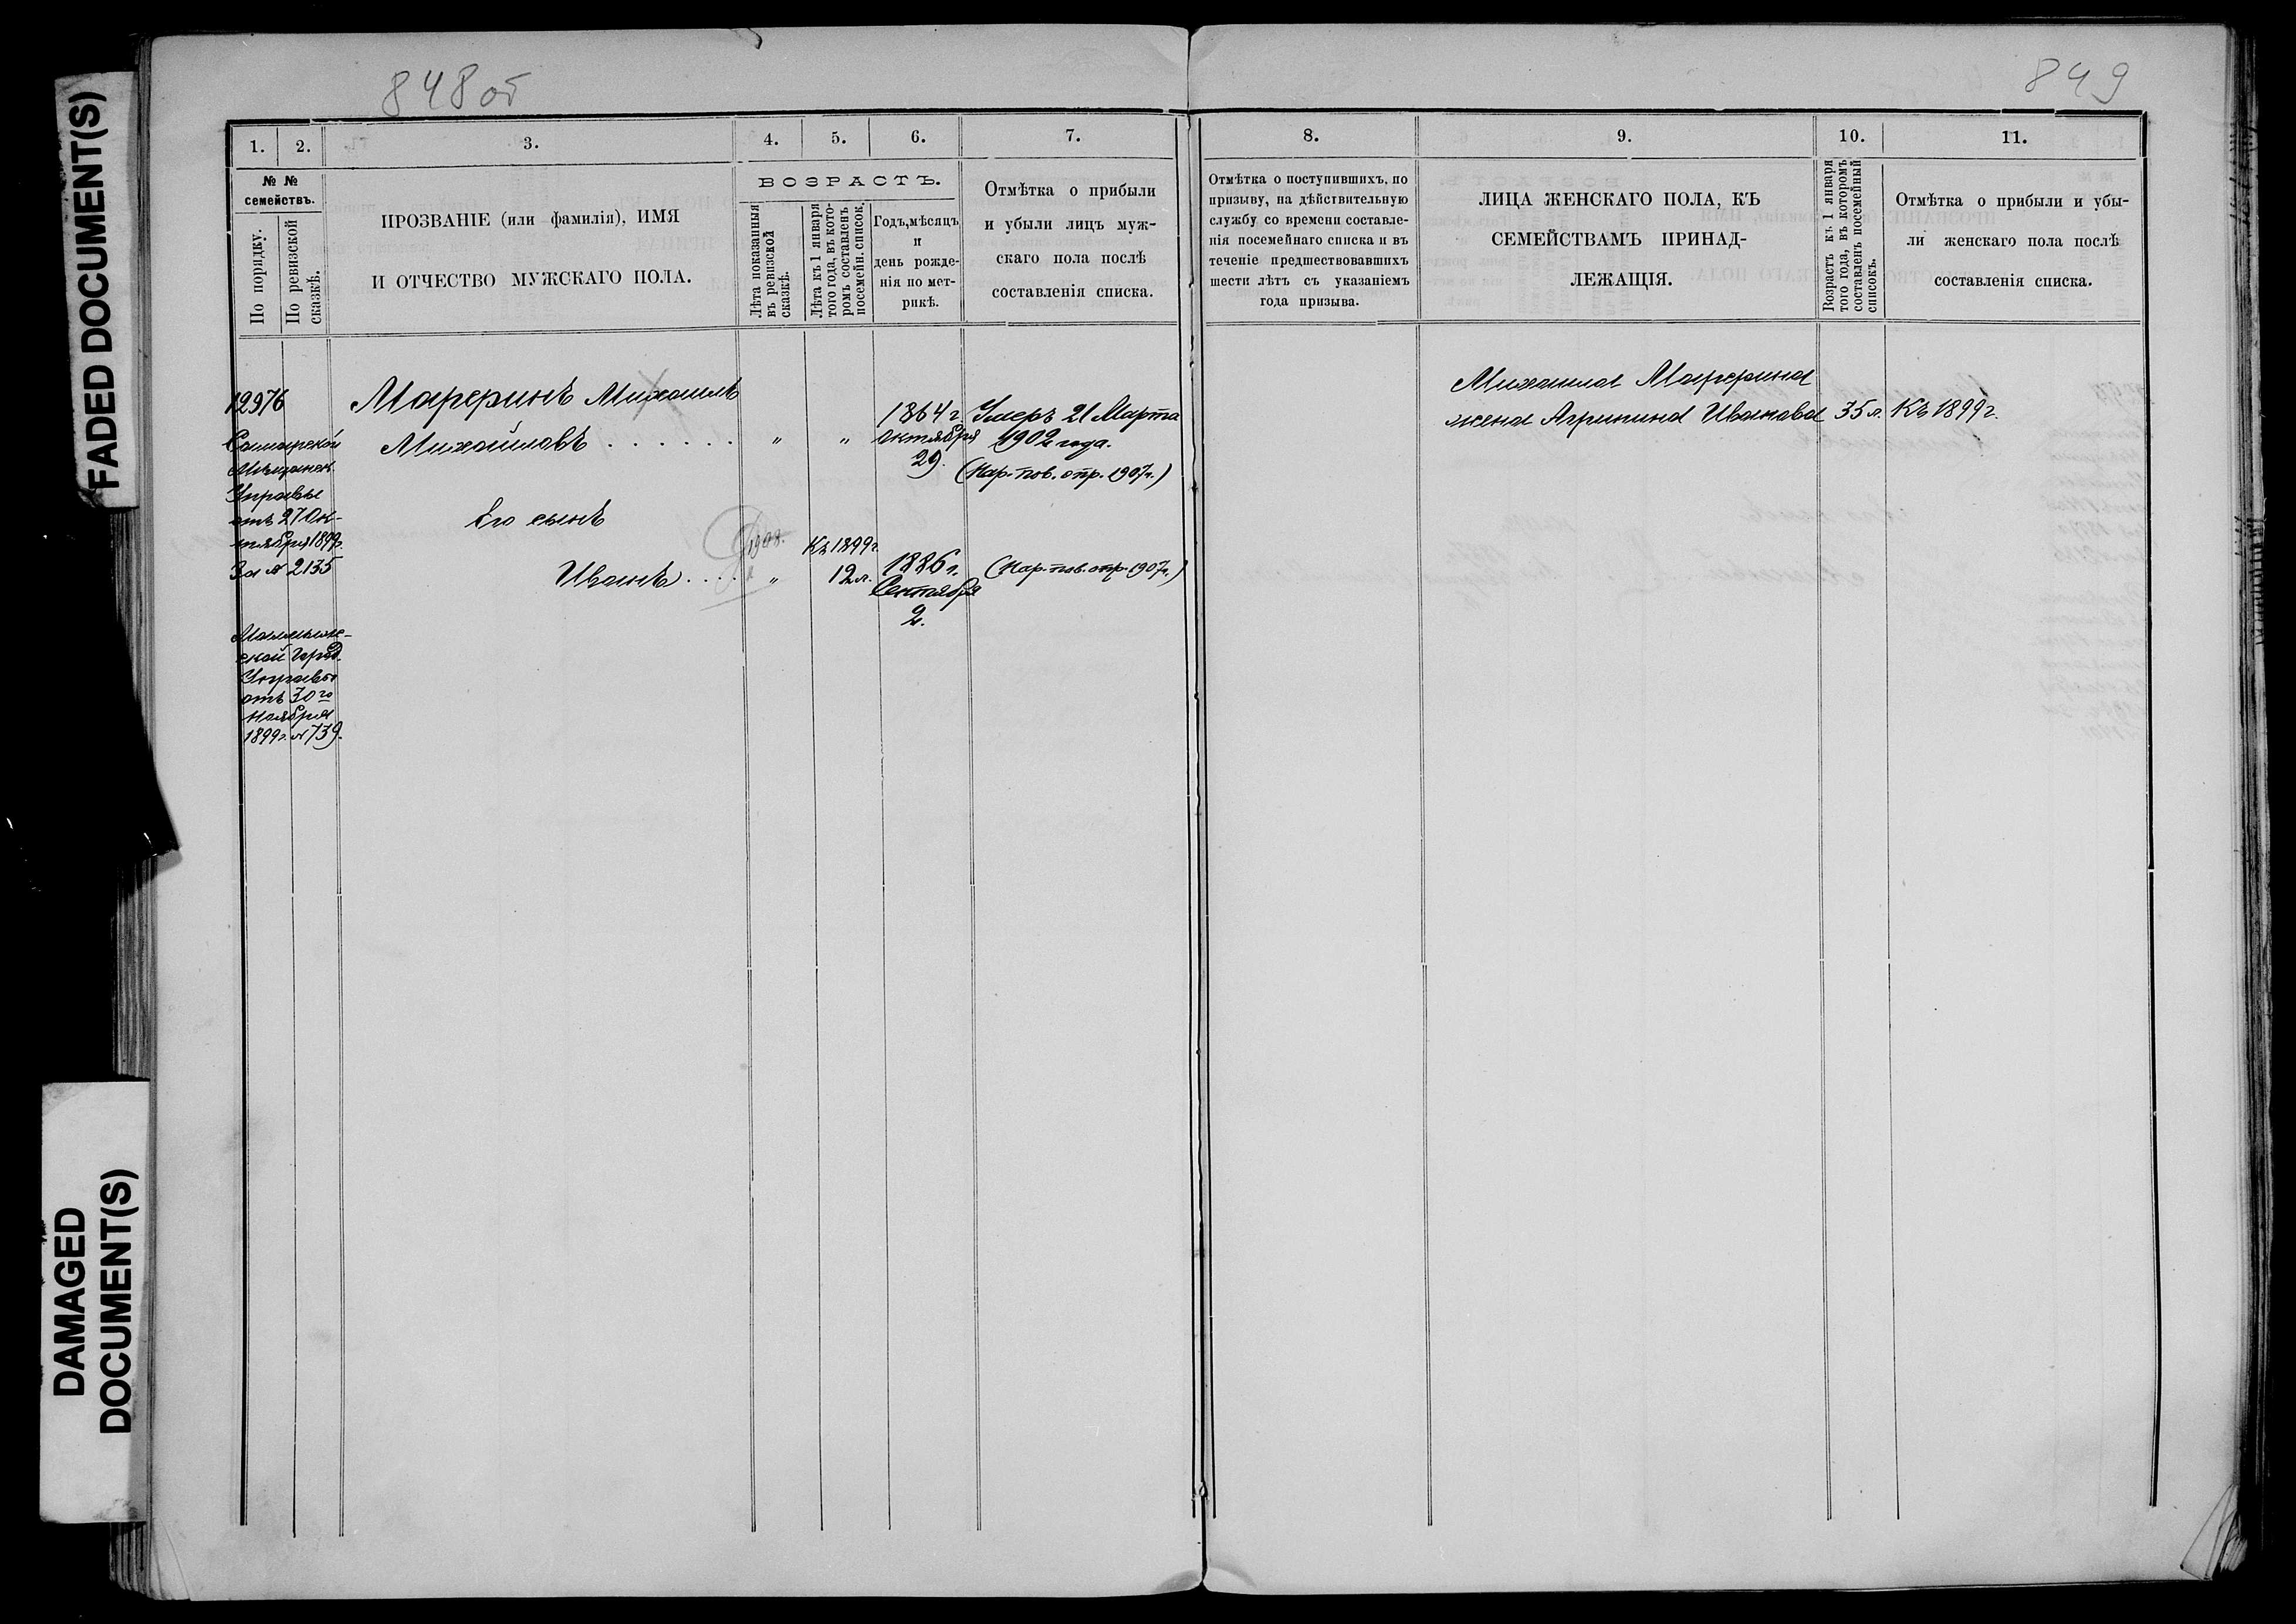 848 об
849
FADED DOCUMENT(S)
DAMAGED
DOCUMENT(S)
1.
2.
3.
4.
5.
6.
7.
№ №
семействъ.
По порядку.
По ревизской
сказкѣ.
ПРОЗВАНІЕ (или фамилія), ИМЯ
И ОТЧЕСТВО МУЖСКАГО ПОЛА.
ВОЗРАСТЪ.
Лѣта показанныя
въ ревизской
сказкѣ.
Лѣта къ 1 января
того года, въ кото-
ромъ составленъ
посемейн. список.
Годъ, мѣсяцъ
и
день рожде-
нія по мет-
рикѣ.
Отмѣтка о прибыли
и убыли лицъ муж-
скаго пола послѣ
составленія списка.
12976
Самарской
Мѣщанск
Управы
отъ 27 Ок-
тября 1899г.
За № 2135
Малмыж-
ской Город.
Управы
отъ 30го
ноября
1899г. № 739.
Мареринъ Михаилъ
Михайловъ . . . . . . „ „
1864 г.
октября
29.
Умеръ 21 Марта
1902 года.
(Нар. пов. отр. 1907г.)
Его сынъ
Иванъ . . . . „
1908.
Къ 1899г.
12 л.
1886 г.
Сентября
2.
(Нар. пов. отр. 1907г.)
8.
9.
10.
11.
Отмѣтка о поступившихъ, по
призыву, на дѣйствительную
службу со времени составле-
нія посемейнаго списка и въ
теченіе предшествовавшихъ
шести лѣтъ съ указаніемъ
года призыва.
ЛИЦА ЖЕНСКАГО ПОЛА, КЪ
СЕМЕЙСТВАМЪ ПРИНАД-
ЛЕЖАЩІЯ.
Возрастъ къ 1 января
того года, въ которомъ
составленъ посемейный
списокъ.
Отмѣтка о прибыли и убы-
ли женскаго пола послѣ
составленія списка.
Михаила Марерина
жена Агрипина Иванова 35 л. Къ 1899 г.